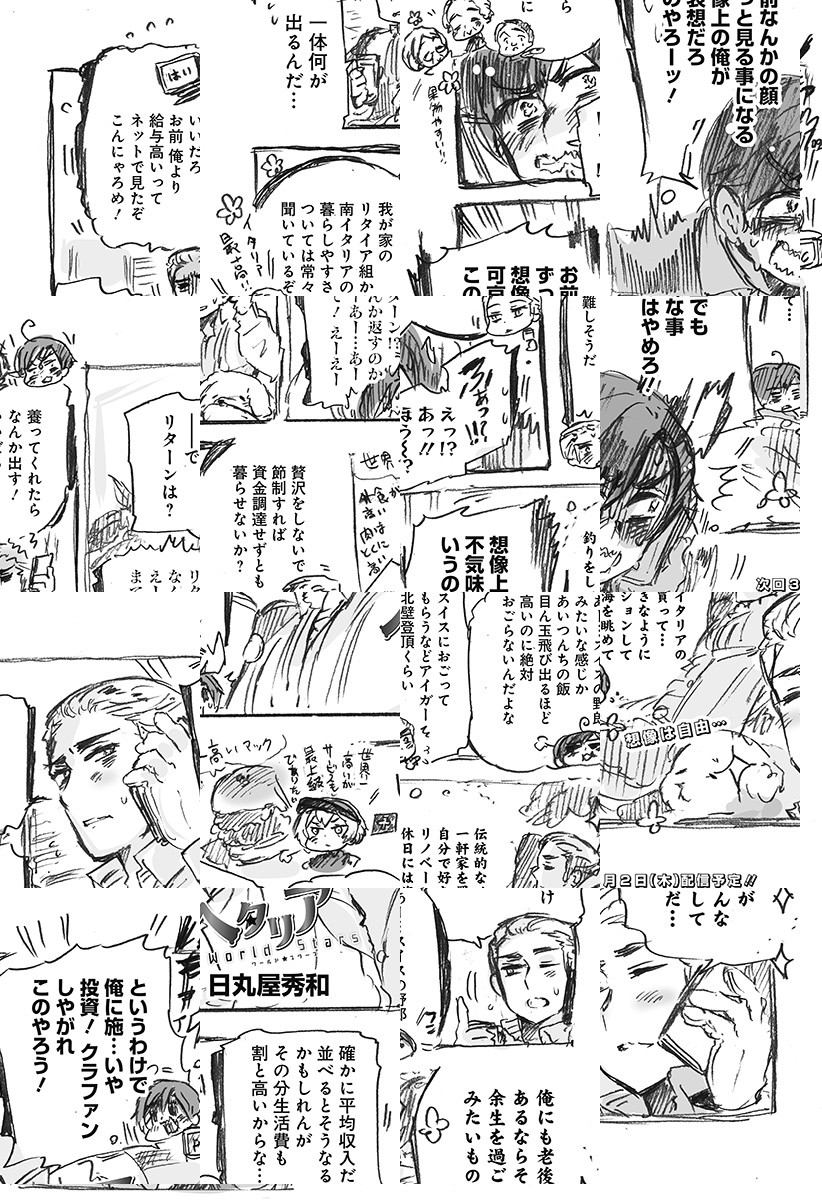 はい
いいだろ
お前 俺より
給与高いって
ネットで見たぞ
こんにゃろめ!
一体何が
出るんだ…
我が家の
リタイア組か
南イタリアの
暮らしやすさ
ついては常々
聞いているぞ
イタリア
最高!!
果物やすい!!
お前
ずっ
想像
可哀
この
前なんかの顔
っと見る事になる
像上の俺が
哀想だろ
のやろーッ!
養ってくれたら
なんか出す!
――で
リターンは?
ターン!?
んか返すのか
あー…あー
! えーえー
贅沢をしないで
節制すれば
資金調達せずとも
暮らせないか?
世界一
えっ!?
あっ!!
ほう〜?
あっ!!!
難しそうだ
想像上
不気味
いうの
釣りをし
でも
な事
はやめろ!!
て…
次回3
高いマック
世界一
高いが
サービスも
最上級
スイスにおごって
もらうなどアイガーを
北壁登頂くらい
みたいな感じか
あいつんちの飯
目ん玉飛び出るほど
高いのに絶対
おごらないんだよな
伝統的な
一軒家を
自分で好
リノベー
休日には
イタリアの
買って…
きなように
ションして
海を眺めて
想像は自由…
というわけで
俺に施…いや
投資! クラファン
しやがれ
このやろう!
ヘタリア
World★Stars
ワールド★スターズ
日丸屋秀和
確かに平均収入だ
並べるとそうなる
かもしれんが
その分生活費も
割と高いからな…
スイスの野郎
俺にも老後
あるならそ
余生を過ご
みたいもの
月2日(木)配信予定!!
が
んな
して
だ…